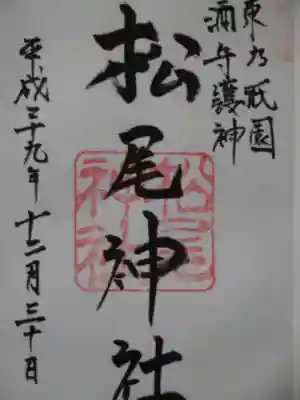 東乃祇園
酒守護神
松尾神社
平成二十九年十二月三十日
松尾
神社